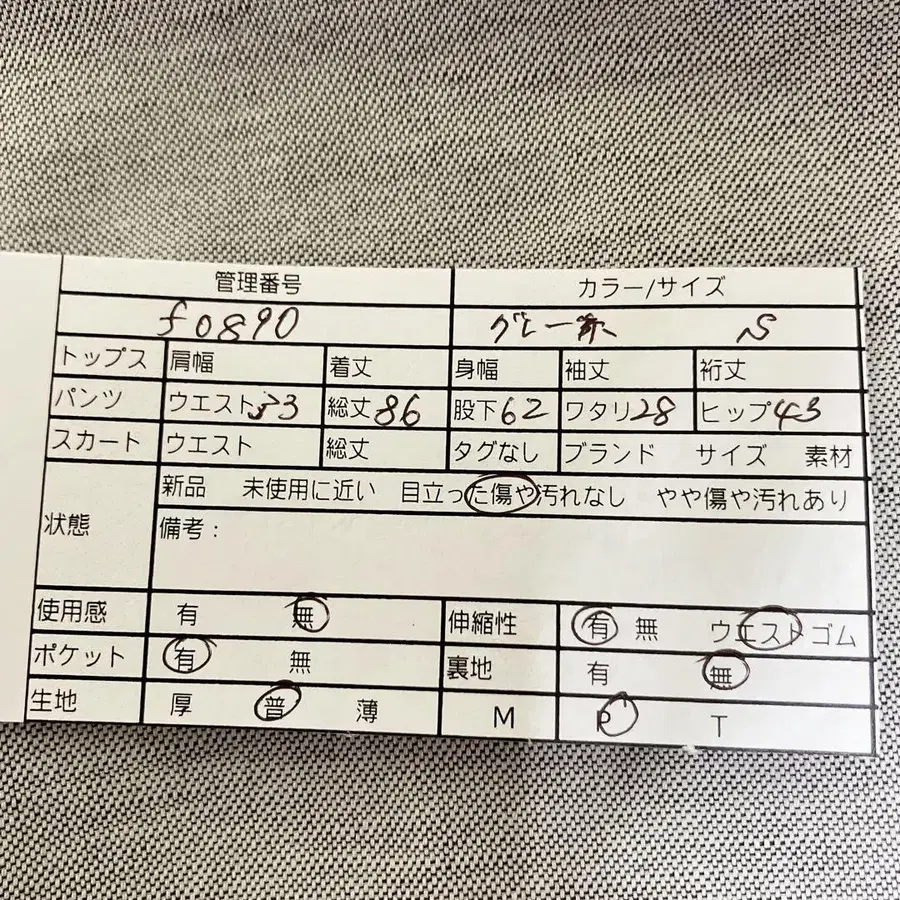 管理番号 カラー/サイズ
f0890 グレー系 S
トップス 肩幅 着丈 身幅 袖丈 裄丈
パンツ ウエスト33 総丈86 股下62 ワタリ28 ヒップ43
スカート ウエスト 総丈 タグなし ブランド サイズ 素材
状態 新品 未使用に近い 目立った傷や汚れなし やや傷や汚れあり
備考:
使用感 有 無 伸縮性 有 無 ウエストゴム
ポケット 有 無 裏地 有 無
生地 厚 普 薄 M P T